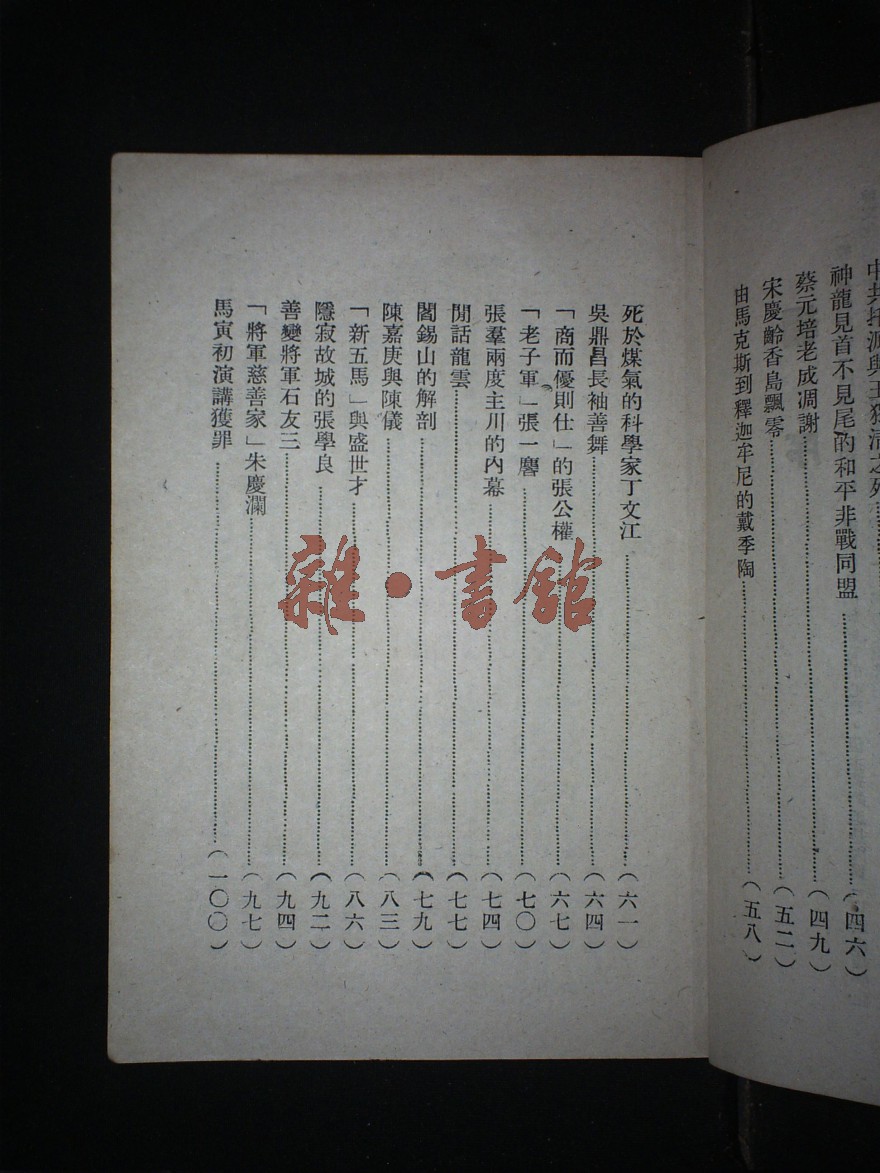 神龍見首不見尾的和平非戰同盟……（四六）
蔡元培老成凋謝……（四九）
宋慶齡香島飄零……（五二）
由馬克斯到釋迦牟尼的戴季陶……（五八）
死於煤氣的科學家丁文江……（六一）
吳鼎昌長袖善舞……（六四）
「商而優則仕」的張公權……（六七）
「老子軍」張一麐……（七〇）
張羣兩度主川的內幕……（七四）
閒話龍雲……（七七）
閻錫山的解剖……（七九）
陳嘉庚與陳儀……（八三）
「新五馬」與盛世才……（八六）
隱寂故城的張學良……（九二）
善變將軍石友三……（九四）
「將軍慈善家」朱慶瀾……（九七）
馬寅初演講獲罪……（一〇〇）
雜·書館